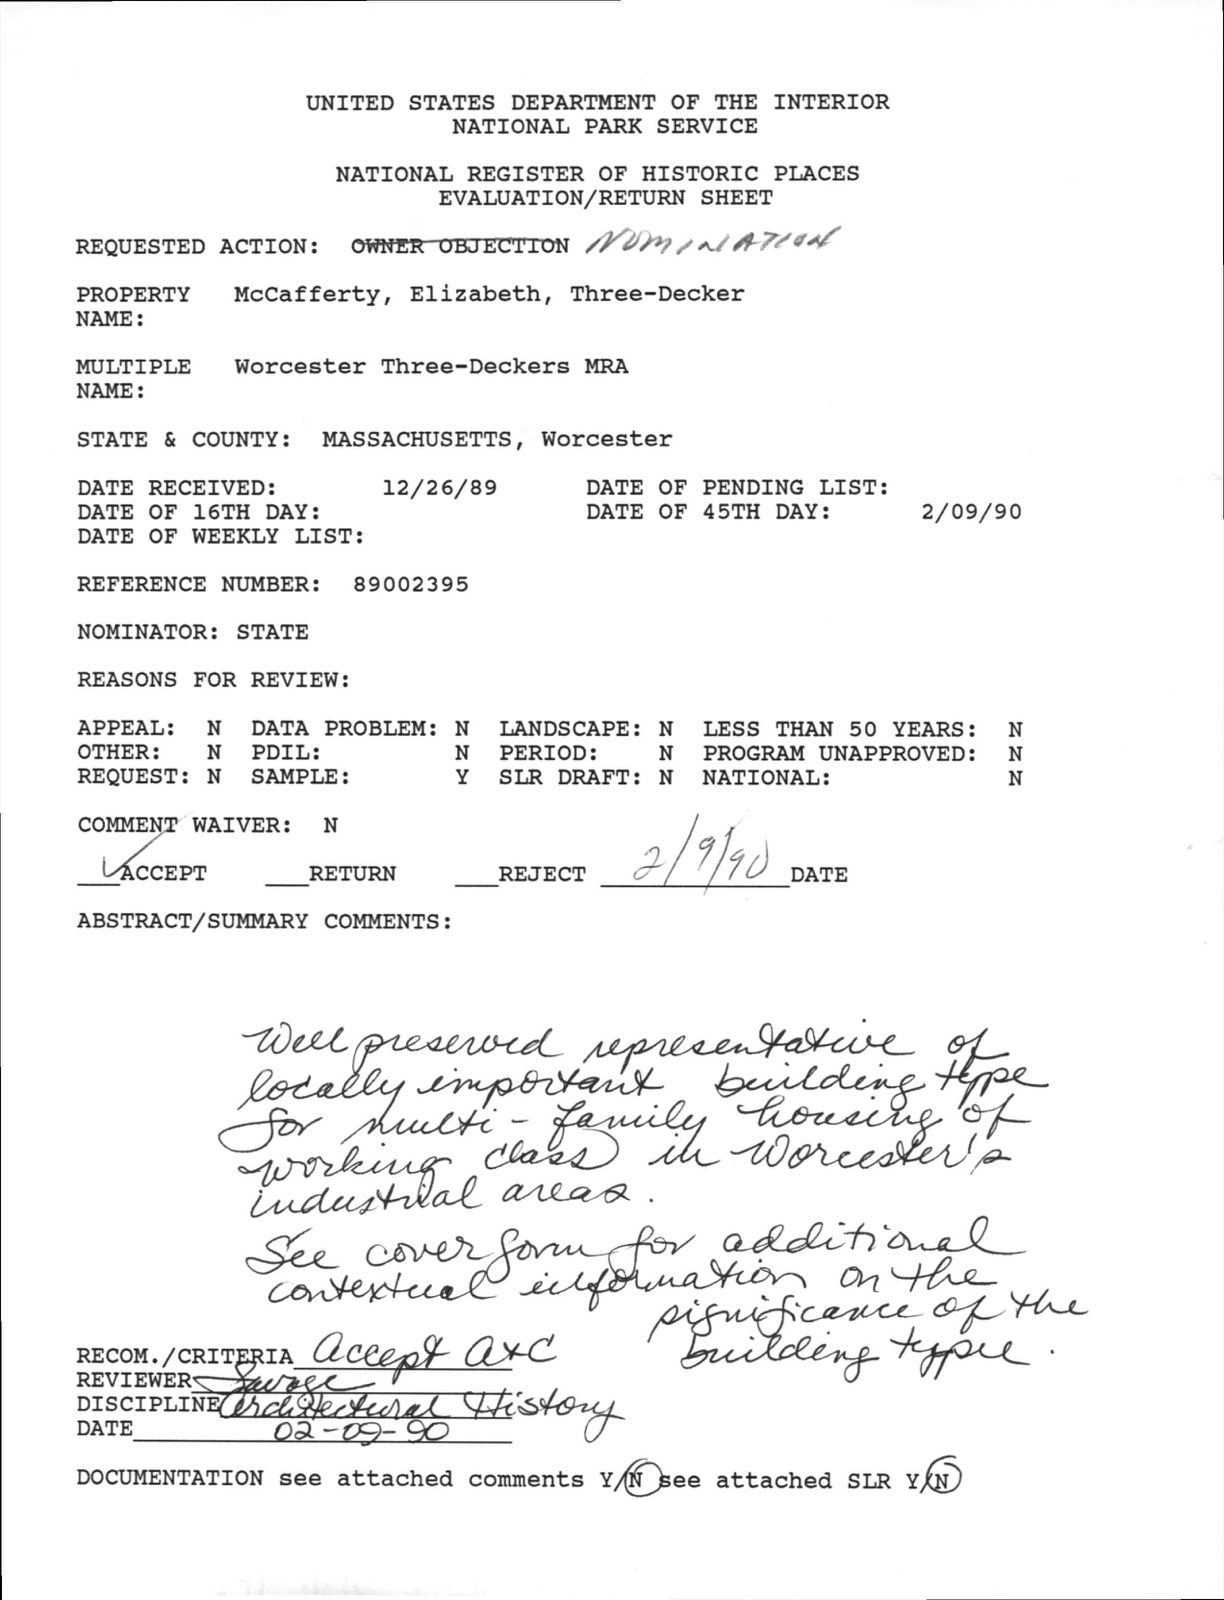 UNITED STATES DEPARTMENT OF THE INTERIOR
NATIONAL PARK SERVICE
NATIONAL REGISTER OF HISTORIC PLACES
EVALUATION/RETURN SHEET
REQUESTED ACTION: OWNER OBJECTION NOMINATION
PROPERTY McCafferty, Elizabeth, Three-Decker
NAME:
MULTIPLE Worcester Three-Deckers MRA
NAME:
STATE & COUNTY: MASSACHUSETTS, Worcester
DATE RECEIVED: 12/26/89 DATE OF PENDING LIST:
DATE OF 16TH DAY: DATE OF 45TH DAY: 2/09/90
DATE OF WEEKLY LIST:
REFERENCE NUMBER: 89002395
NOMINATOR: STATE
REASONS FOR REVIEW:
APPEAL: N DATA PROBLEM: N LANDSCAPE: N LESS THAN 50 YEARS: N
OTHER: N PDIL: N PERIOD: N PROGRAM UNAPPROVED: N
REQUEST: N SAMPLE: Y SLR DRAFT: N NATIONAL: N
COMMENT WAIVER: N
ACCEPT RETURN REJECT 2/9/90 DATE
ABSTRACT/SUMMARY COMMENTS:
Well preserved representative of
locally important building type
for multi-family housing of
working class in Worcester's
industrial areas.
See cover form for additional
contextual information on the
significance of the
building type.
RECOM./CRITERIA Accept A+C
REVIEWER Savage
DISCIPLINE Architectural History
DATE 02-09-90
DOCUMENTATION see attached comments Y/N see attached SLR Y/N